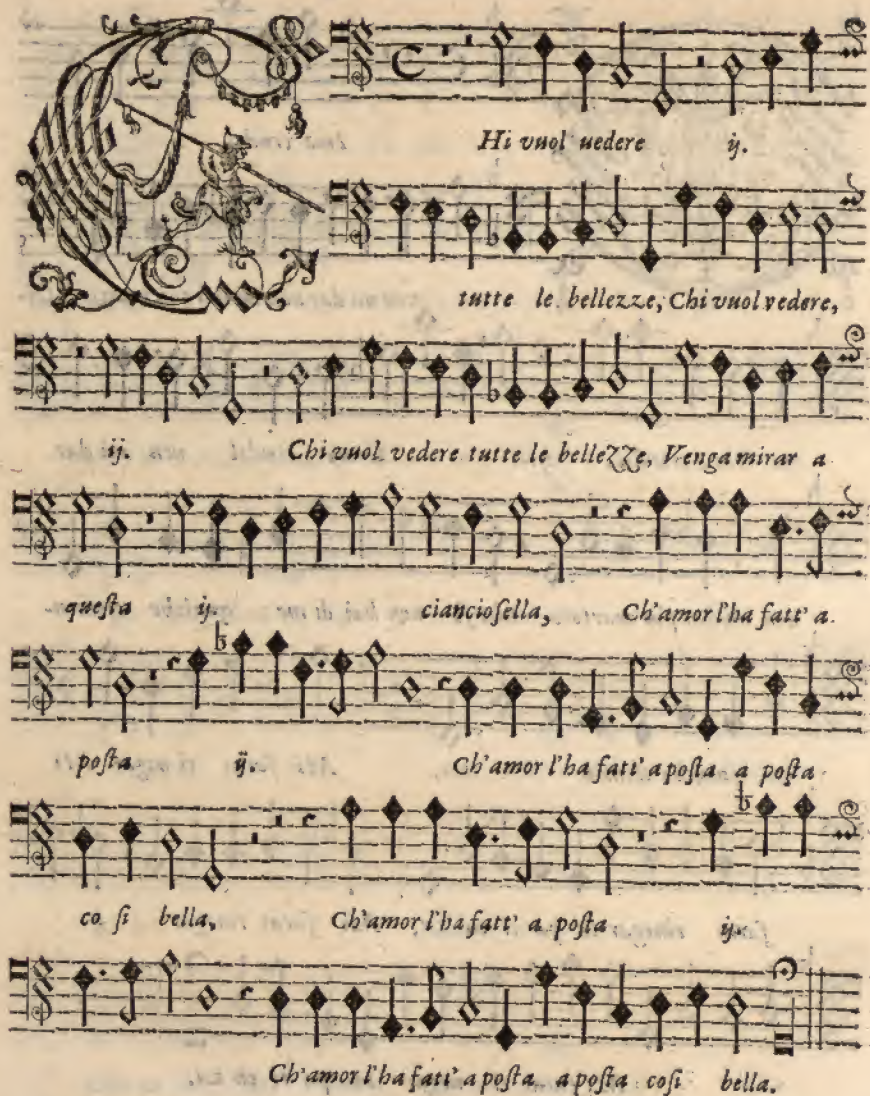 CHi vuol uedere ij.
tutte le bellezze, Chi vuol vedere,
ij. Chi vuol vedere tutte le bellezze, Venga mirar a
questa ij. cianciosella, Ch'amor l'ha fatt' a
posta ij. Ch'amor l'ha fatt' a posta a posta
co si bella, Ch'amor l'ha fatt' a posta ij.
Ch'amor l'ha fatt' a posta a posta cosi bella.